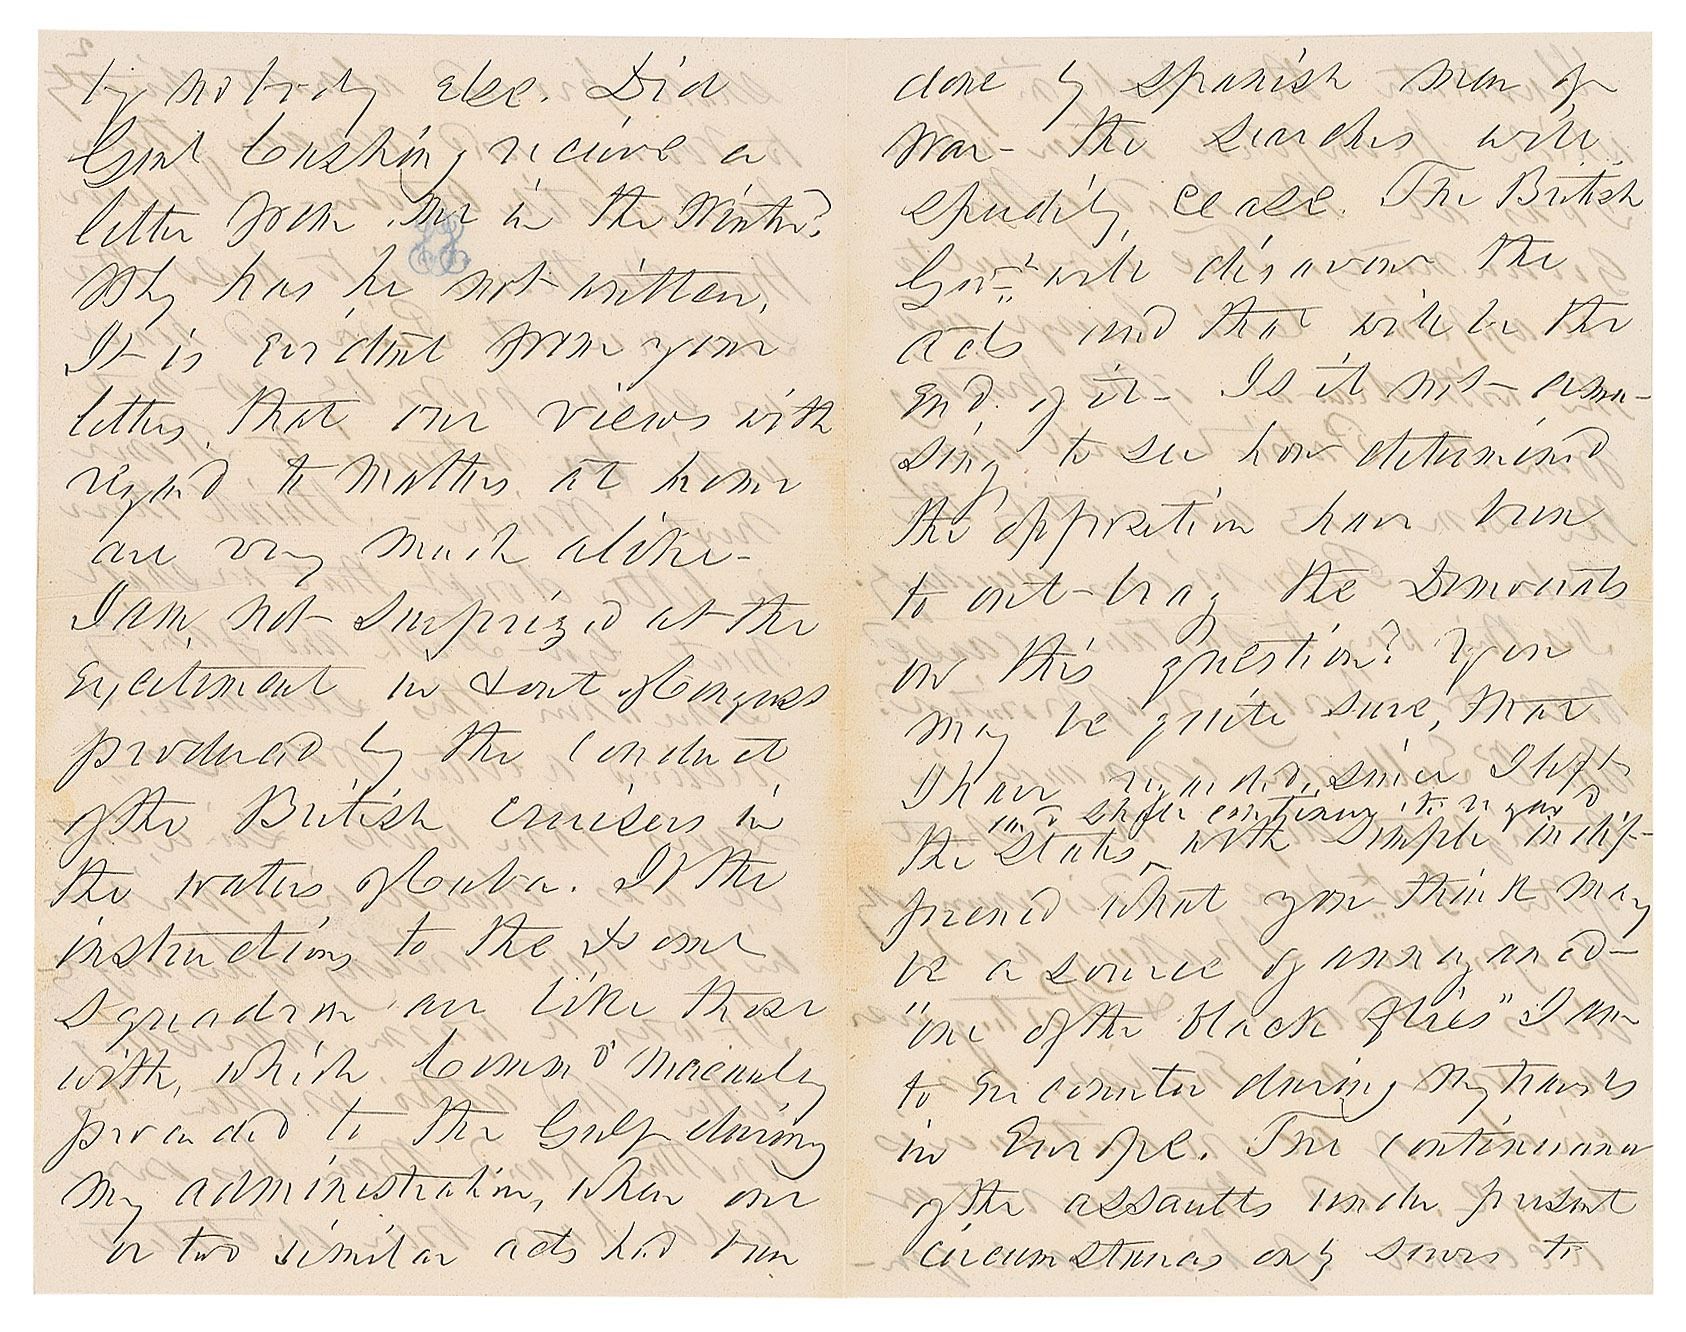 by nobody else. Did
Genl Cushing recieve a
letter from me in the Winter?
Why has he not written.
It is evident from your
letters, that our views with
regard to matters at home
are very much alike-
I am, not surprized at the
Excitement in & out of Congress
produced by the conduct
of the British cruisers in
the waters of Cuba. If the
instructions to the Home
Squadron are like those
with, which Commo Macauley
proceeded to the Gulf during
my administration, when one
or two similar acts had been
done by Spanish men of
War- the searches will
speedily cease. The British
Govt will disavow the
acts and that will be the
End. of it- Is it not- amu-
sing to see how determined
the opposition have been
to out-brag the Democrats
on this question? You
may be quite sure, that
I have regarded, since I left
and shall continue to regard
the States, with simple indif-
ference what you think may
be a source of annoyance-
"one of the black flies" I am
to Encounter during my travels
in Europe. The continuance
of the assaults under present
circumstances only serves to